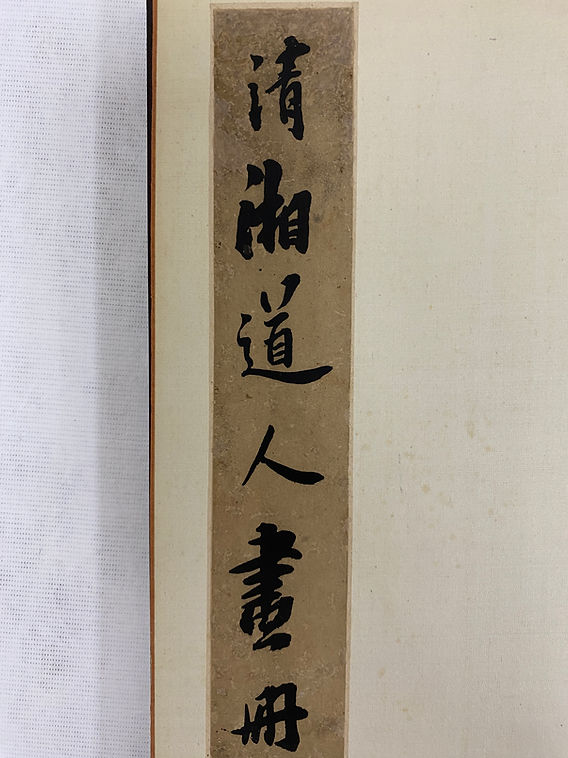 清湘道人畫冊